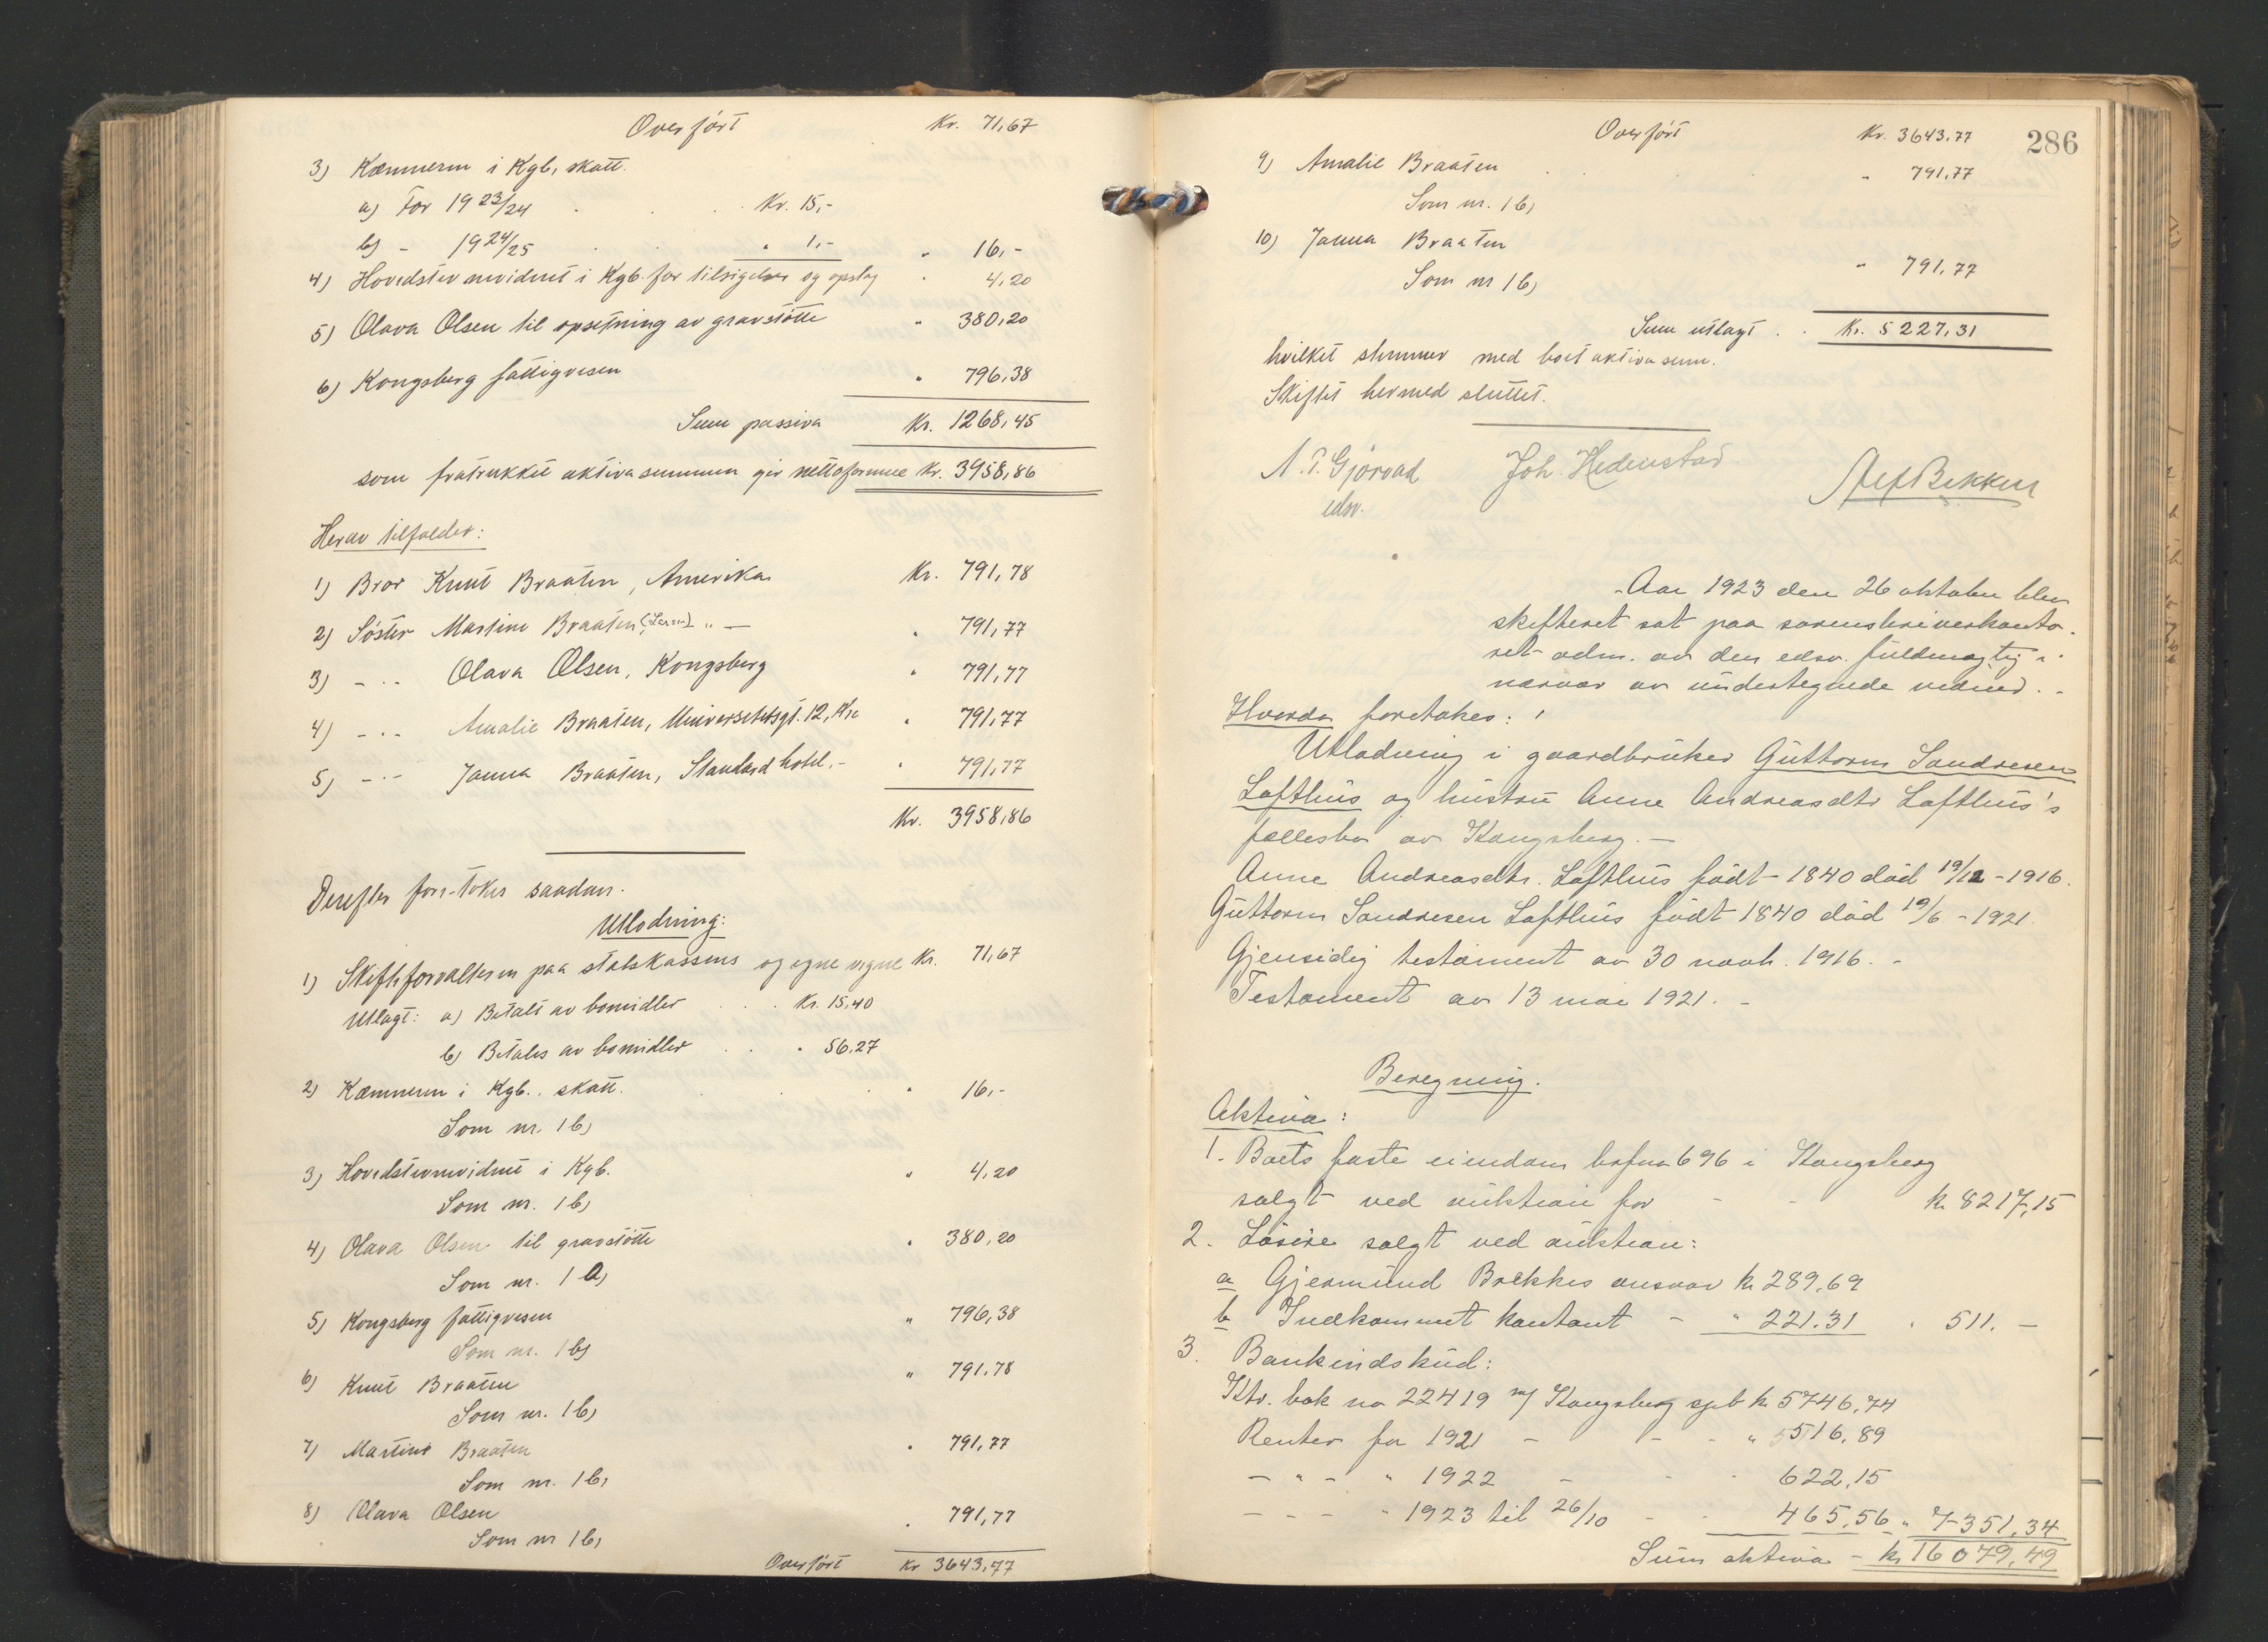 Overført Kr. 71,67
3) Kæmneren i Kgb, skatt.
a) For 1923/24 . . . Kr. 15,-
b) - 1924/25 . . " 1,- " 16,-
4) Hovedstevnevidnet i Kgb. for tilsigelser og opslag " 4,20
5) Olava Olsen til opsetning av gravstøtte " 380,20
6) Kongsberg fattigvesen " 796,38
Sum passiva Kr. 1268,45
som fratrukket aktivasummen gir nettoformue Kr. 3958,86
Herav tilfalder:
1) Bror Knut Braaten, Amerika Kr. 791,78
2) Søster Martine Braaten (Larsen), " — " 791,77
3) - " - Olava Olsen, Kongsberg " 791,77
4) - " - Amalie Braaten, Universitetsgt. 12, Kra " 791,77
5) - " - Janna Braaten, Standard hotel, - " 791,77
Kr. 3958,86
Derefter foretokes saadan
Utlodning:
1) Skifteforvalteren paa statskassens og egne vegne Kr. 71,67
Utlagt: a) Betalt av bomidler . . Kr. 15,40
b) Betales av bomidler . . " 56,27
2) Kæmneren i Kgb., skatt. . . " 16,-
Som nr. 1 b)
3) Hovedstevnevidnet i Kgb. " 4,20
Som nr. 1 b)
4) Olava Olsen til gravstøtte " 380,20
Som nr. 1 a)
5) Kongsberg fattigvesen " 796,38
Som nr. 1 b)
6) Knut Braaten " 791.78
Som nr. 1 b)
7) Martine Braaten " 791,77
Som nr. 1 b)
8) Olava Olsen " 791,77
Som nr 1 b)
Overført Kr 3643,77
286
Overført Kr. 3643,77
9) Amalie Braaten . . " 791,77
Som nr. 1 b)
10) Janna Braaten
Som nr 1 b) " 791,77
Sum utlagt . . Kr. 5227,31
hvilket stemmer med boets aktivasum.
Skiftet hermed sluttet.
N.T. Gjörvad Joh. Hedenstad Alf Bekken
edsv.
Aar 1923 den 26 oktober blev
skifteret sat paa sorenskriverkonto-
ret adm. av den edsv. fuldmægtig i
nærvær av undertegnede vidner. -
Hvorda foretokes:
Utlodning i gaardbruker Guttorm Sondresen
Lofthus og hustru Anne Andreasdtr Lofthus's
fællesbo av Kongsberg. —
Anne Andreasdtr. Lofthus født 1840 død 19/12 - 1916.
Guttorm Sondresen Lofthus født 1840 død 19/6 - 1921.
Gjensidig testament av 30 novb. 1916. -
Testament av 13 mai 1921. -
Beregning.
Aktiva:
1. Boets faste eiendom husno 696 i Kongsberg
solgt ved auktion for - - kr 8217,15
2. Løsøre solgt ved auktion:
a Gjermund Brekkes ansvar kr 289,69
b Indkommet kontant - " 221.31 " 511. —
3. Bankindskud:
Ktr. bok no 22419 m/ Kongsberg spb kr 5746,74
Renter for 1921 - - - " 516,89
- " - " 1922 - - - 622,15
- - - " 1923 til 26/10 - - 465,56 " 7351,34
Sum aktiva - kr 16079,49